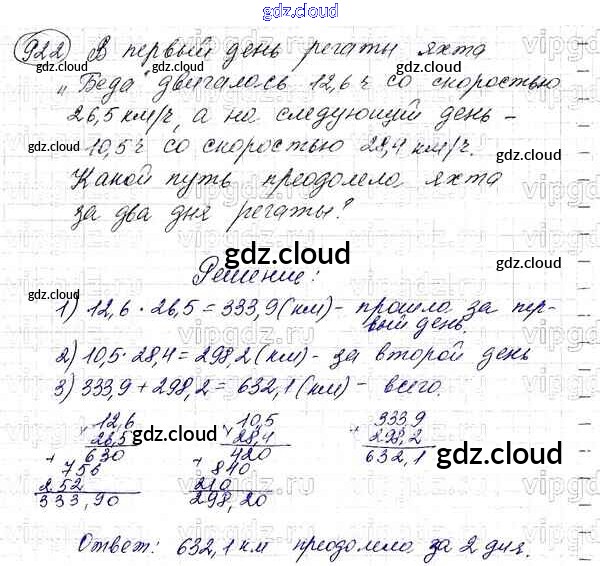 gdz.cloud
gdz.cloud
922) В первый день регаты яхта
„Беда" двигалась 12,6 ч со скоростью
gdz.cloud gdz.cloud
26,5 км/ч, а на следующий день –
10,5 ч со скоростью 28,4 км/ч.
gdz.cloud gdz.cloud
Какой путь преодолела яхта
за два дня регаты?
gdz.cloud
Решение:
gdz.cloud gdz.cloud
1) 12,6 · 26,5 = 333,9 (км) – прошла за пер-
вый день.
2) 10,5 · 28,4 = 298,2 (км) – за второй день
3) 333,9 + 298,2 = 632,1 (км) – всего.
12,6 10,5 333,9
26,5 28,4 298,2
gdz.cloud gdz.cloud gdz.cloud
630 420 632,1
756 840
252 210
333,90 298,20
gdz.cloud gdz.cloud
Ответ: 632,1 км преодолела за 2 дня.
gdz.cloud